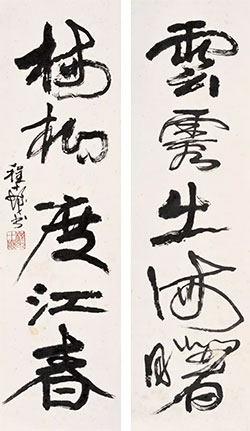 雲霞出海曙
梅柳度江春
程十髮书